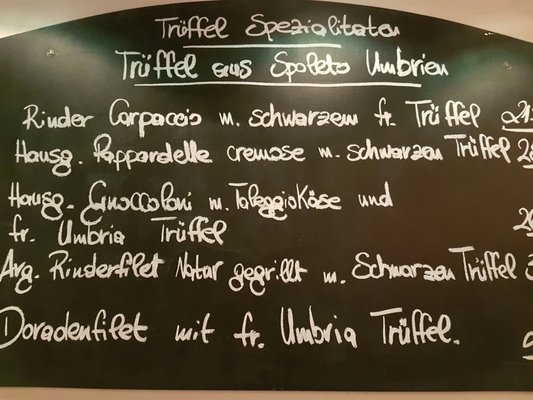 Trüffel Spezialitaten
Trüffel aus Spoleto Umbrien
Rinder Carpaccio m. schwarzem fr. Trüffel
Hausg. Pappardelle cremose m. schwarzen Trüffel
Hausg. Gnoccoloni m. Taleggio Käse und
fr. Umbria Trüffel
Arg. Rinderfilet Natur gegrillt m. Schwarzen Trüffel
Doradenfilet mit fr. Umbria Trüffel.